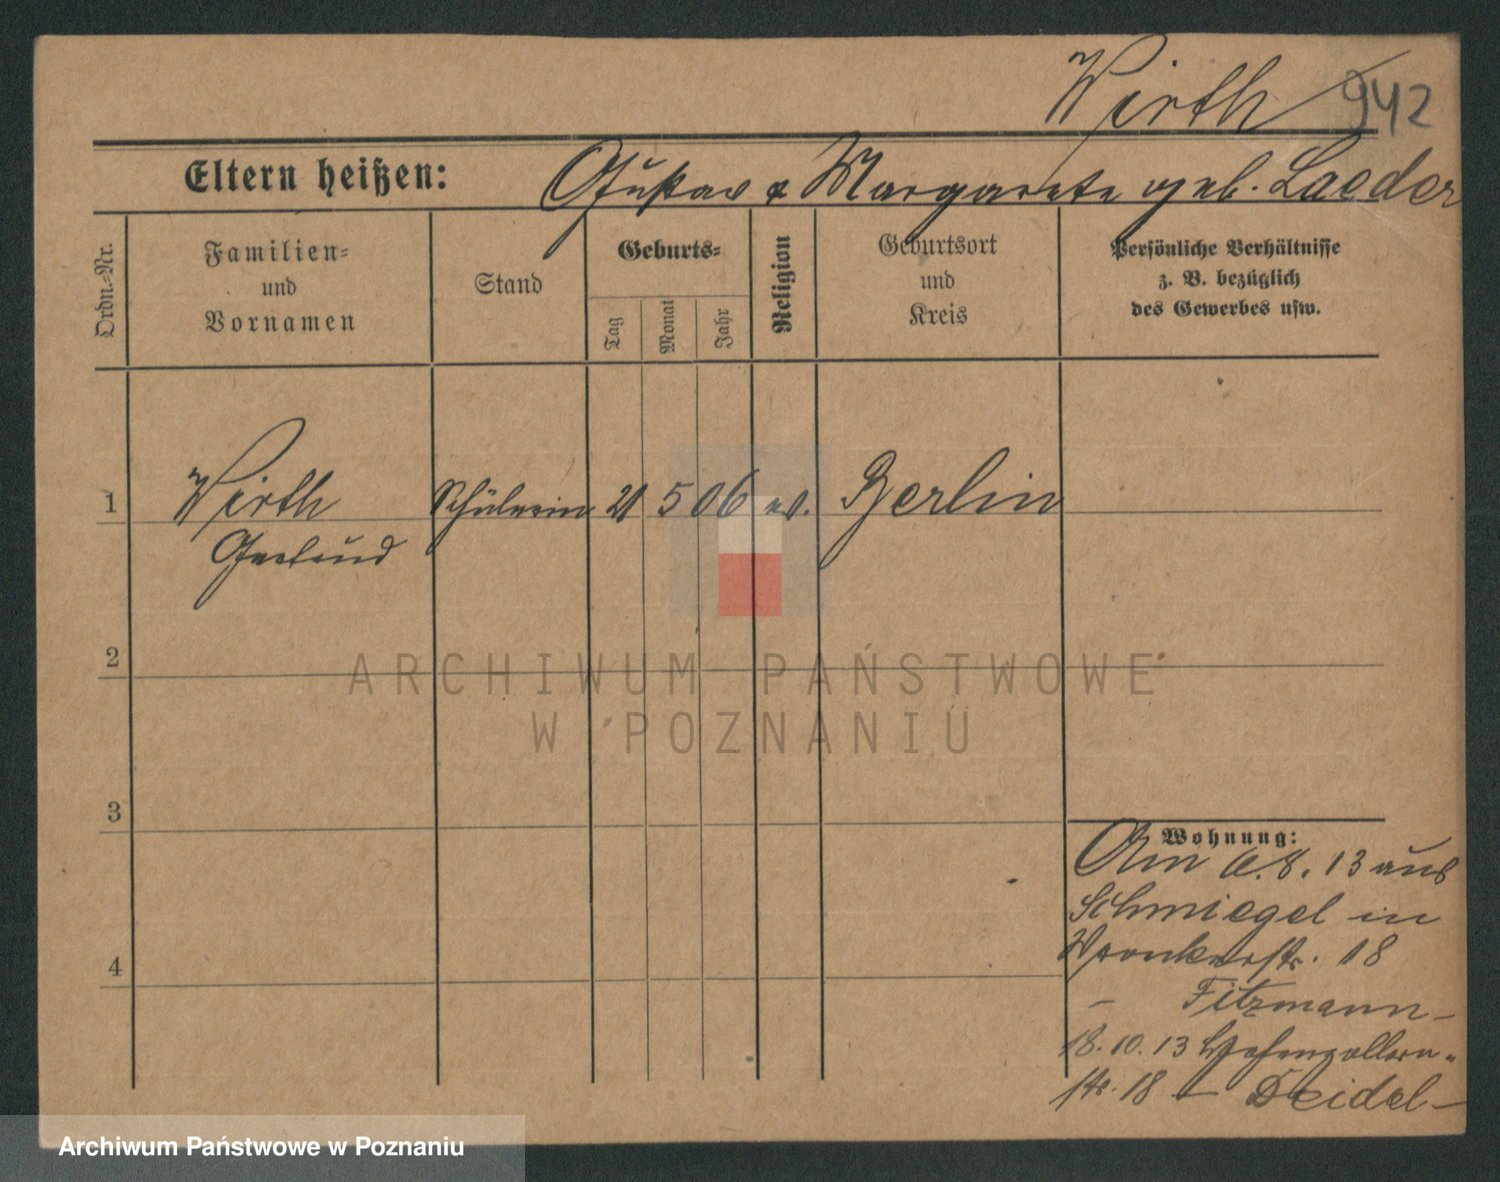 Wirth 942
Eltern heißen: Gustav & Margarete geb. Laeder
Ordn.-Nr.
Familien-
und
Vornamen
Stand
Geburts-
Tag
Monat
Jahr
Religion
Geburtsort
und
Kreis
Persönliche Verhältnisse
z. B. bezüglich
des Gewerbes usw.
1 Wirth Schülerin 21 5 06 ev. Berlin
Gertrud
2
ARCHIWUM PAŃSTWOWE
W POZNANIU
3
Wohnung:
Am 6.8.13 aus
Schmiegel in
Wronkerstr. 18
– Fitzmann –
4
18.10.13 Hohenzollern-
str. 18 – Deidel –
Archiwum Państwowe w Poznaniu